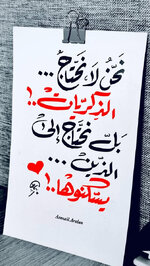 نَحْنُ لَا نَحْتَاجُ ...
الذِّكْرَيَاتْ ..!
بَلْ نَحْتَاجُ إِلىَ
الذينَ ...
يَسْكُنُوهَا..!
Ismail Arslan